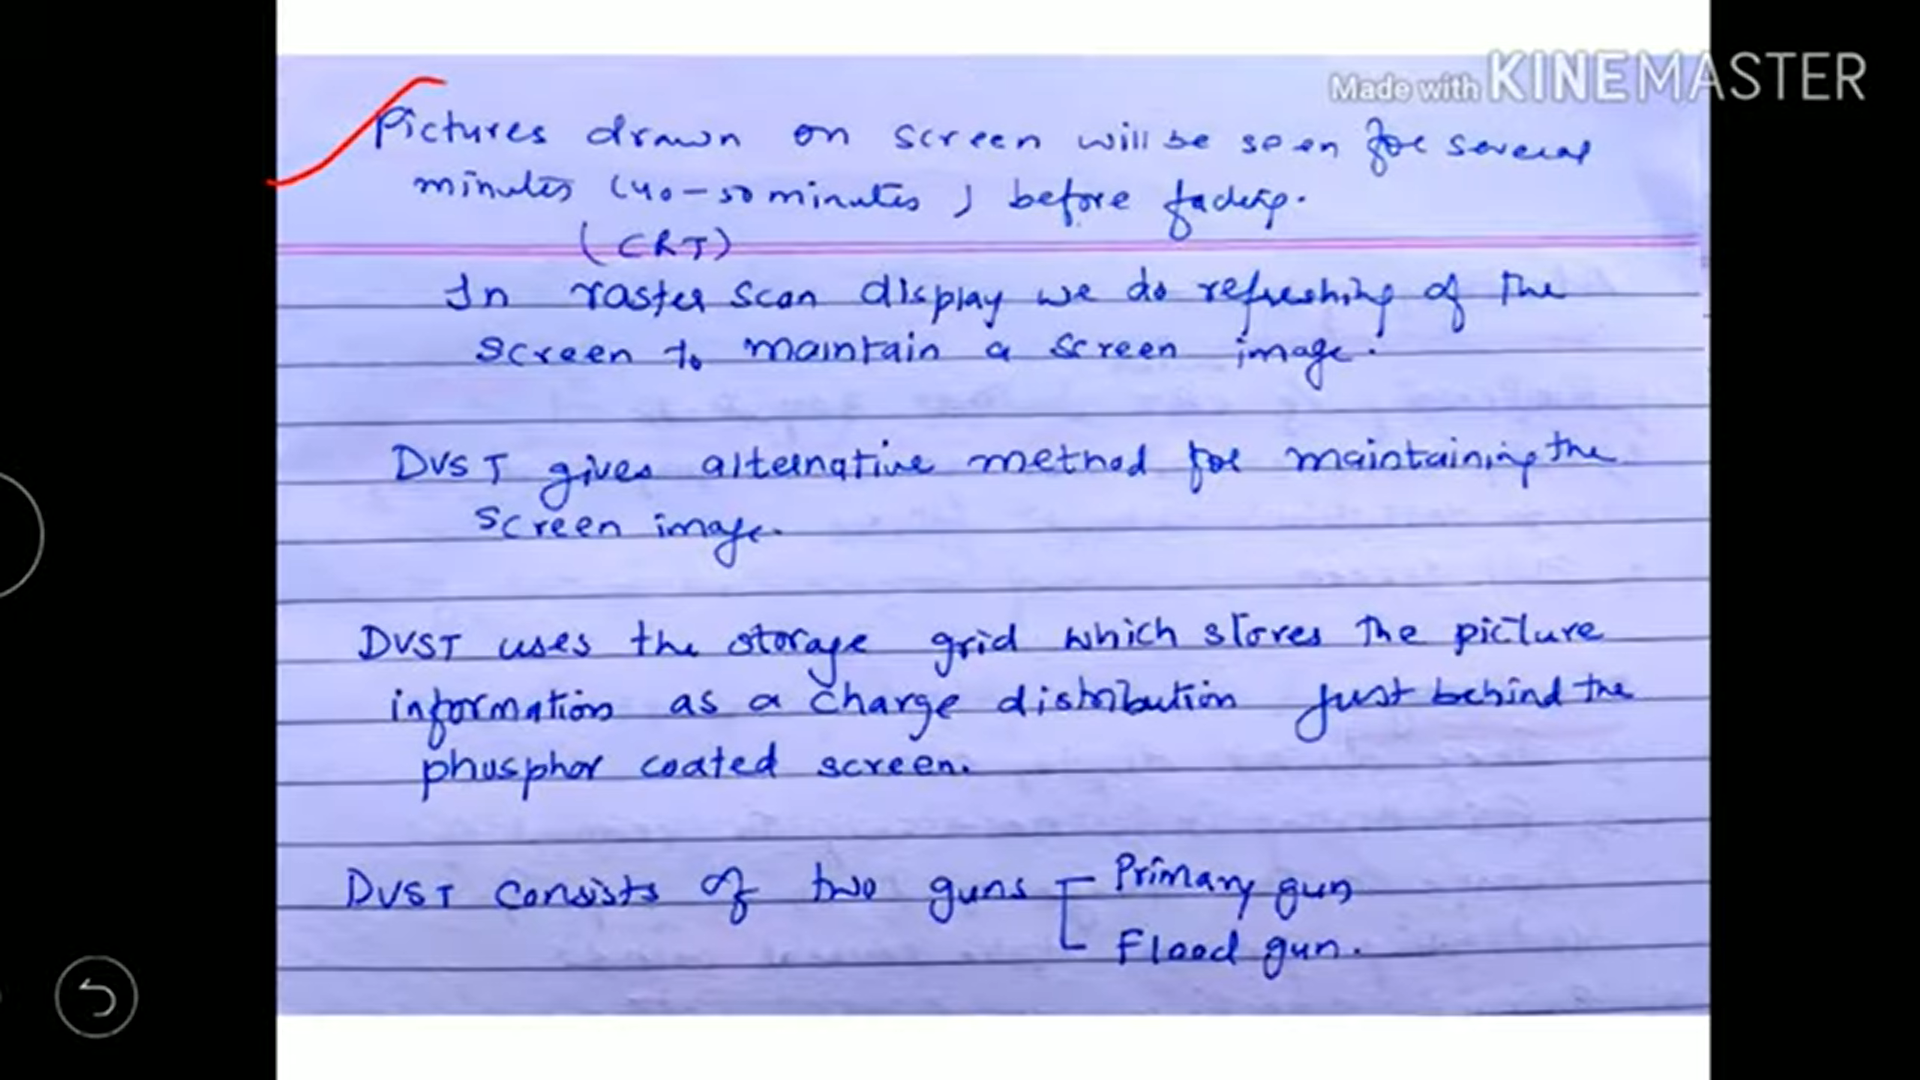 Made with KINEMASTER
Pictures drawn on screen will be seen for several
minutes (40-50 minutes) before fading.
(CRT)
In raster scan display we do refreshing of the
screen to maintain a screen image.
DVST gives alternative method for maintaining the
screen image.
DVST uses the storage grid which stores the picture
information as a charge distribution just behind the
phosphor coated screen.
DVST consists of two guns Primary gun
Flood gun.